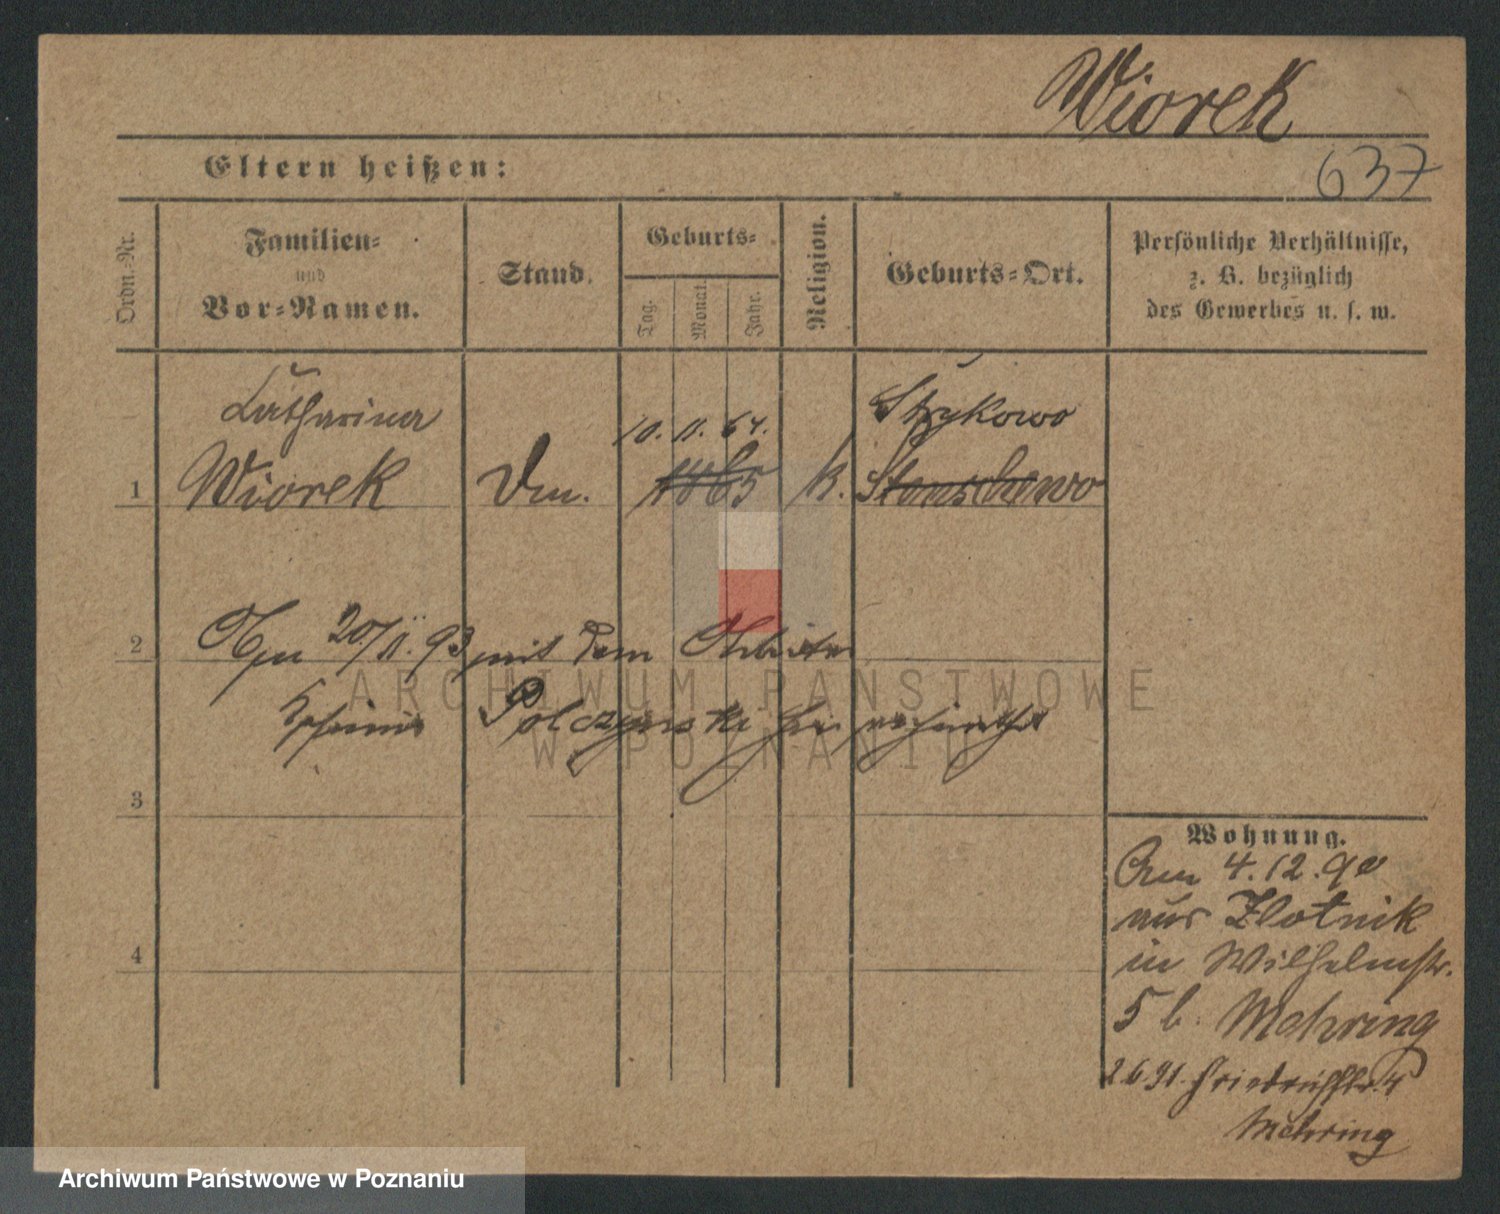 Wiorek
637
Eltern heißen:
Ordn.-Nr.
Familien-
und
Vor-Namen.
Stand.
Geburts-
Tag.
Monat.
Jahr.
Religion.
Geburts-Ort.
Persönliche Verhältnisse,
z. B. bezüglich
des Gewerbes u. s. w.
Catharina
10. 11. 64.
Strykowo
1
Wiorek
Dm.
1865
k.
Stenschewo
2
20/11. 93 mit dem Arbeiter
Polczynski hier
3
4
Wohnung.
Am 4.12.90
aus Zlotnik
in Wilhelmstr.
5 b. Mehring
2.6.91. Friedrichstr. 4
Mehring
ARCHIWUM PAŃSTWOWE
W POZNANIU
Archiwum Państwowe w Poznaniu